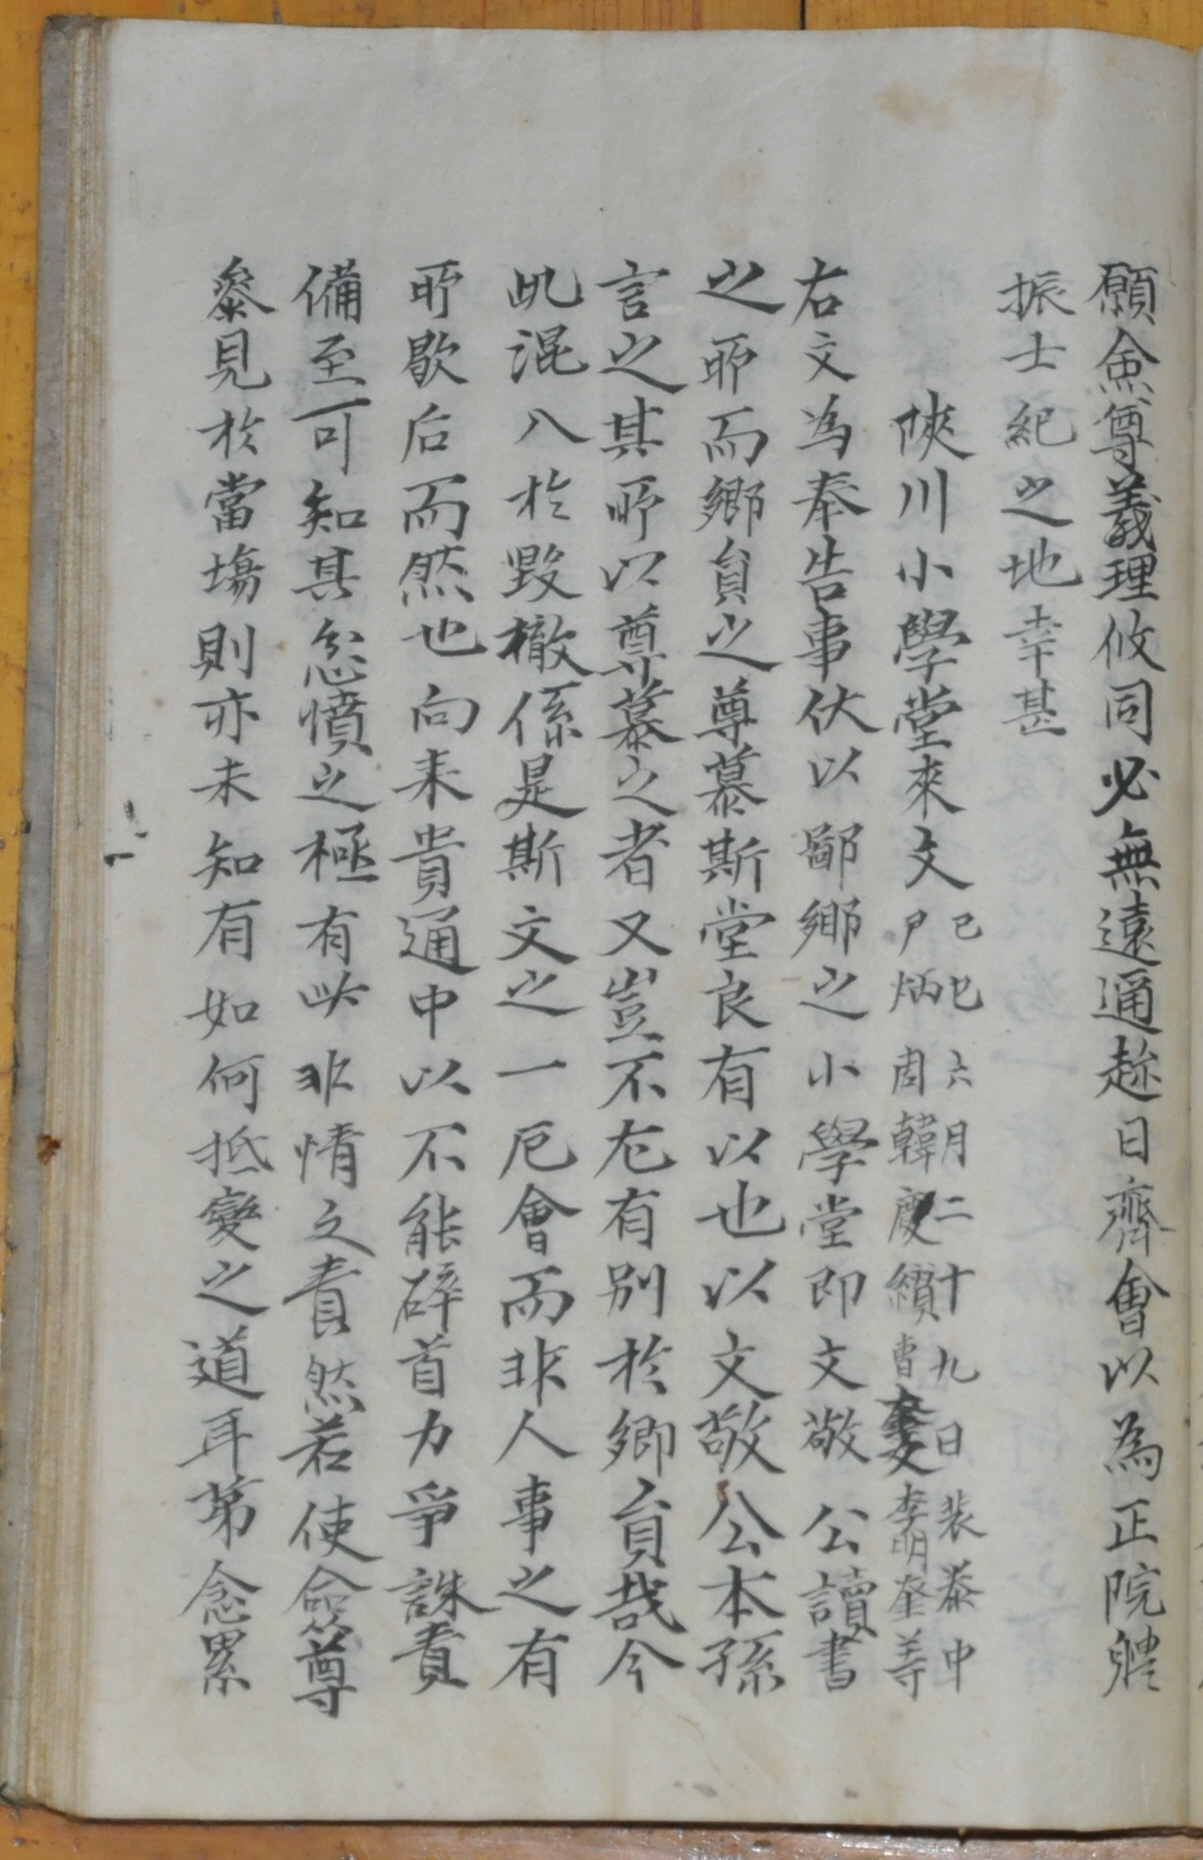 願僉尊義理攸同必無遠通趁日齊會以為正院體
振士紀之地幸甚
陜川小學堂來文 己巳六月二十九日裴泰中
尹炳周韓慶續曺夔李明奎等
右文為奉告事伏以鄙鄉之小學堂即文敬公讀書
之所而鄉員之尊慕斯堂良有以也以文敬公本孫
言之其所以尊慕之者又豈不尤有別於鄉員哉今
此混入於毀撤係是斯文之一厄會而非人事之有
所歇后而然也向来貴通中以不能碎首力爭誅責
備至可知其忿憤之極有此非情之責然若使僉尊
叅見於當塲則亦未知有如何抵變之道耳第念累